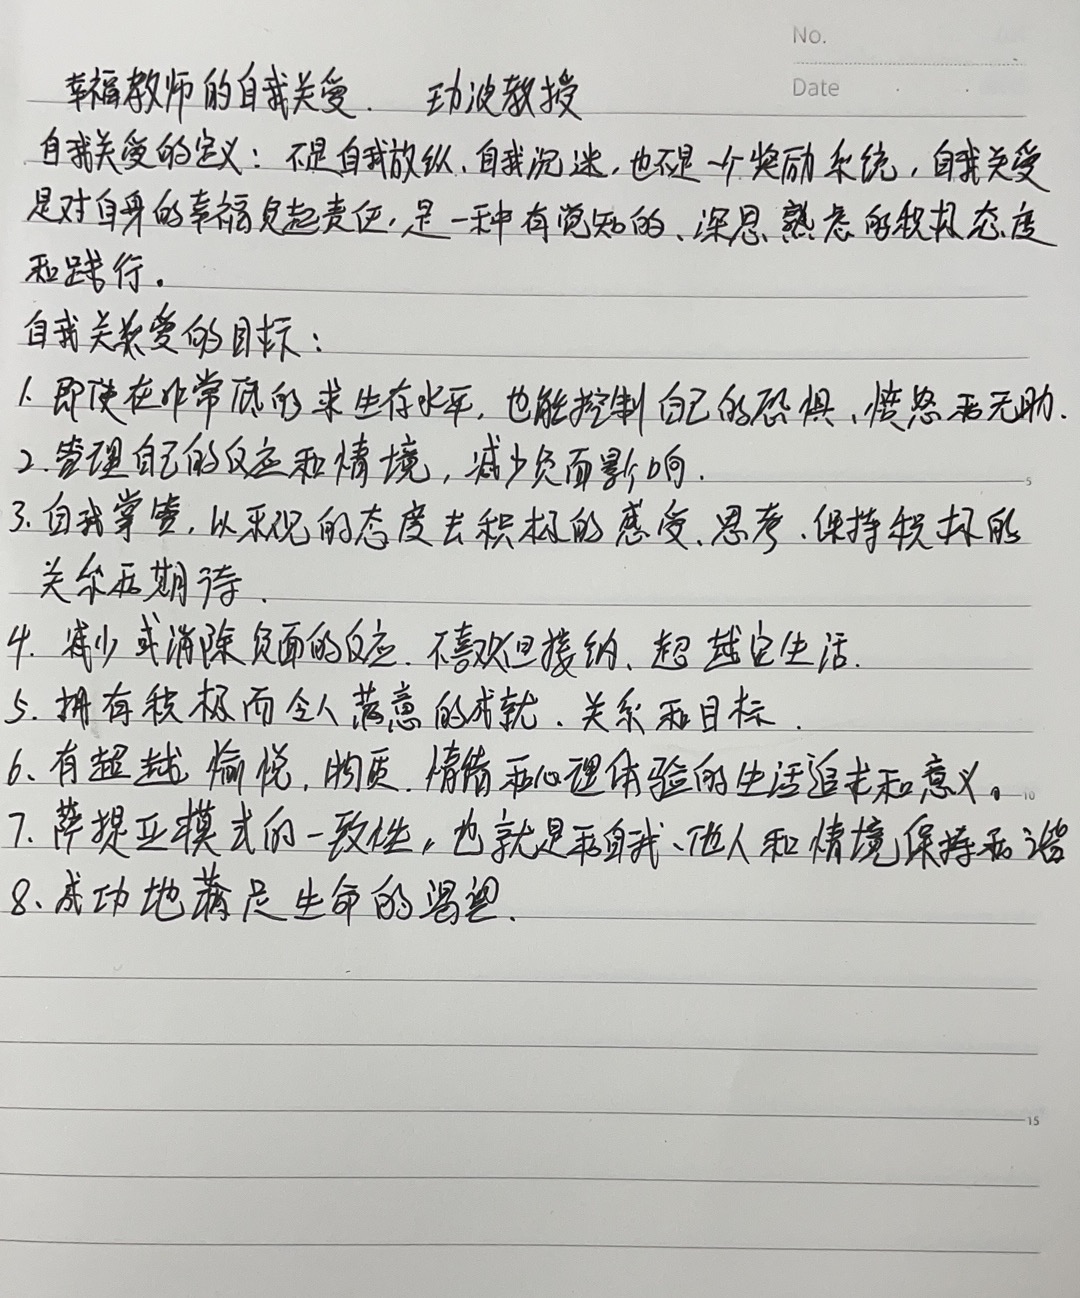 No.
Date
幸福教师的自我关爱. 王劲波教授
自我关爱的定义：不是自我放纵、自我沉迷，也不是一个奖励系统，自我关爱
是对自身的幸福负起责任，是一种有觉知的、深思熟虑的积极态度
和践行。
自我关爱的目标：
1. 即使在非常低的求生存水平，也能控制自己的恐惧、愤怒和无助.
2. 管理自己的反应和情境，减少负面影响. 5
3. 自我掌管，以乐观的态度去积极的感受、思考、保持积极的
关系和期待.
4. 减少或消除负面的反应.不喜欢但接纳、超越它生活.
5. 拥有积极而令人满意的成就、关系和目标.
6、有超越愉悦，物质.情绪和心理体验的生活追求和意义。 10
7、萨提亚模式的一致性，也就是和自我、他人和情境保持和谐
8、成功地满足生命的渴望.
15